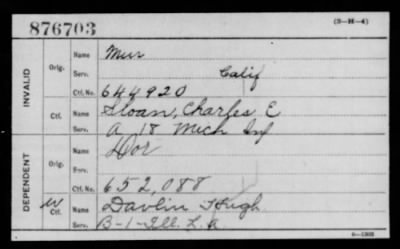 876703 (3-H-4)
INVALID
Orig.
Name Mur
Serv. Calif
Ctf. No. 644920
Ctf.
Name Sloan, Charles E
Serv. A 18 Mich Inf
DEPENDENT
Orig.
Name Dor
Serv.
Ctf. No. 652,088
W Ctf.
Name Davlin Hugh
Serv. B-1-Ill. L. A.